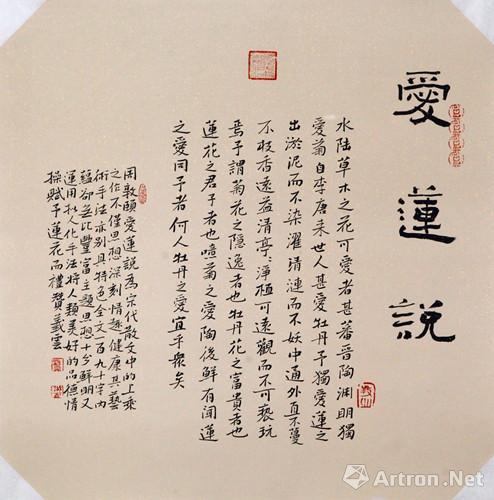 愛蓮說
水陆草木之花可愛者甚蕃晋陶渊明獨
愛菊自李唐来世人甚愛牡丹予獨愛蓮之
出淤泥而不染濯清漣而不妖中通外直不蔓
不枝香遠益清亭〻淨植可遠觀而不可亵玩
焉予謂菊花之隐逸者也牡丹花之富貴者也
蓮花之君子者也噫菊之愛陶後鮮有闻蓮
之愛同予者何人牡丹之愛宜乎衆矣
周敦頤愛蓮説為宋代散文中的上乘
之作不僅思想深刻情趣健康其藝
術手法亦别具特色全文一百九十字内
蕴卻无比豐富主題思想十分鮮明又
運用拟人化手法将人類美好的品德情
操赋予蓮花而禮贊雲
Artron.Net